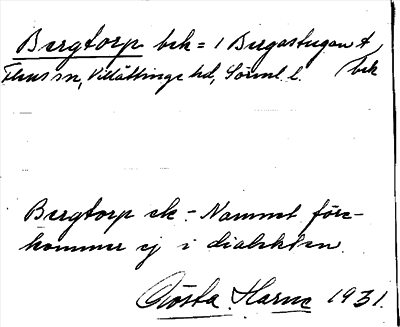 Bergtorp bek = 1 Bergastugan t,
Flens sn, Villåttinge hd, Sörml. l. bek
Bergtorp ek - Namnet före-
kommer ej i dialekten.
Gösta Harne 1931.